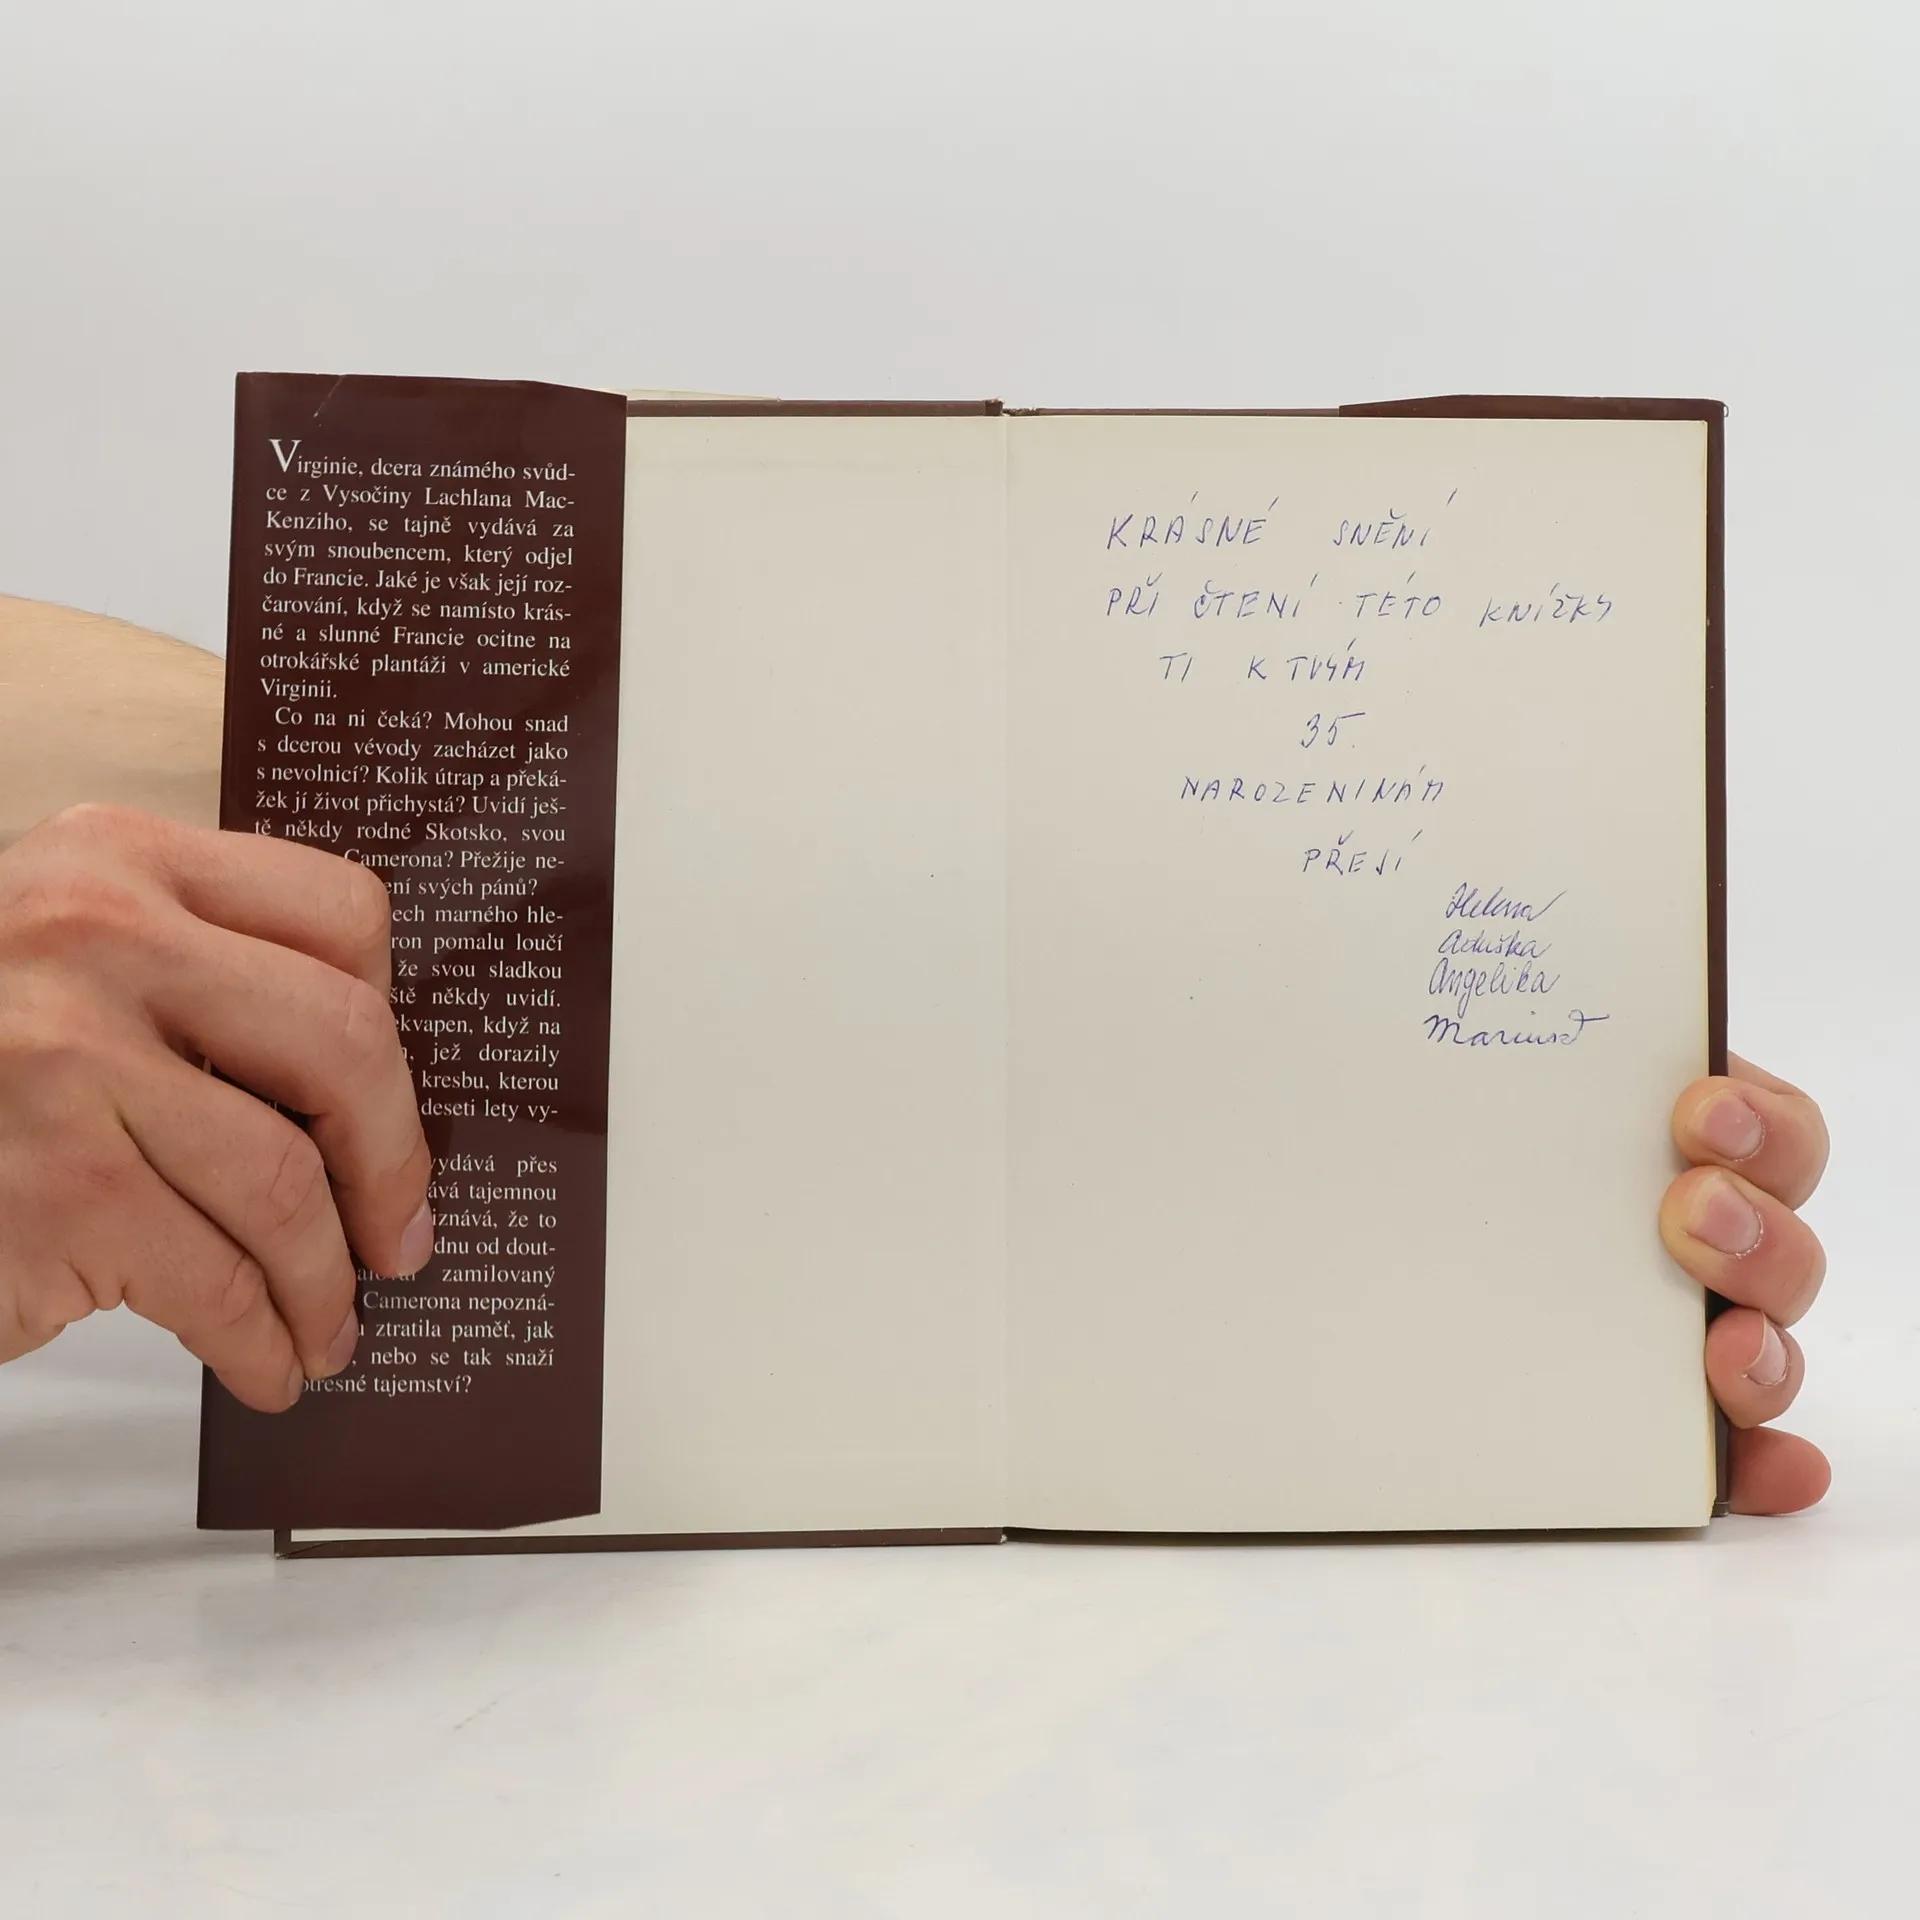 Virginie, dcera známého svůd-
ce z Vysočiny Lachlana Mac-
Kenziho, se tajně vydává za
svým snoubencem, který odjel
do Francie. Jaké je však její roz-
čarování, když se namísto krás-
né a slunné Francie ocitne na
otrokářské plantáži v americké
Virginii.
Co na ni čeká? Mohou snad
s dcerou vévody zacházet jako
s nevolnicí? Kolik útrap a překá-
žek jí život přichystá? Uvidí ješ-
tě někdy rodné Skotsko, svou
Camerona? Přežije ne-
svých pánů?
marného hle-
pomalu loučí
že svou sladkou
někdy uvidí.
když na
jež dorazily
kresbu, kterou
deseti lety vy-
vydává přes
tajemnou
že to
od dout-
zamilovaný
Camerona nepozná-
ztratila paměť, jak
nebo se tak snaží
tajemství?
KRÁSNÉ SNĚNÍ
PŘI ČTENÍ TÉTO KNÍŽKY
TI K TVÝM
35.
NAROZENINÁM
PŘEJÍ
Helena
Aduška
Angelika